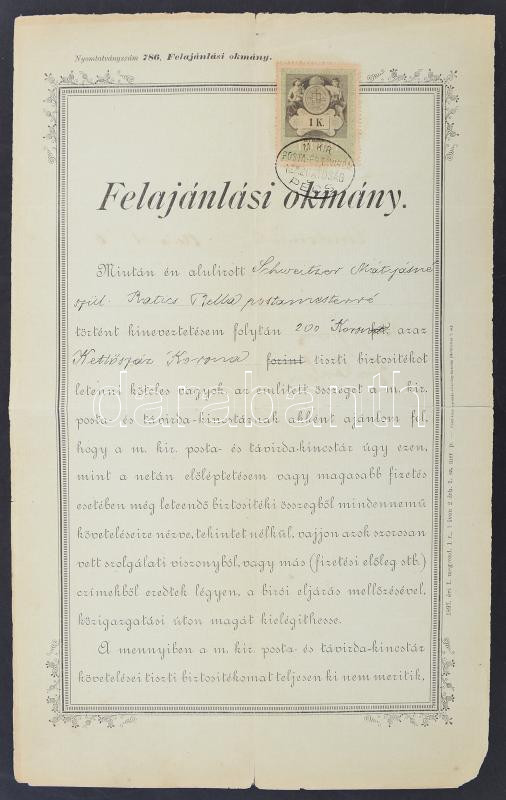 Nyomtatványszám 786. Felajánlási okmány.
1 K.
M. KIR.
POSTA-
IGAZGATÓSÁG
PÉCS
Felajánlási okmány.
Miután én alulirott Schweitzer Mátyásné
szül. Ratics Bella postamesterré
történt kineveztetésem folytán 200 Korona, azaz
Kettőszáz Korona forint tiszti biztositékot
letenni köteles vagyok, az emlitett összeget a m. kir.
posta- és távirda-kincstárnak akként ajánlom fel,
hogy a m. kir. posta- és távirda-kincstár úgy ezen,
mint a netán előléptetésem vagy magasabb fizetés
esetében még leteendő biztositéki összegből mindennemű
követeléseire nézve, tekintet nélkül, vajjon azok szorosan
vett szolgálati viszonyból, vagy más (fizetési előleg stb.)
czimekből eredtek légyen, a birói eljárás mellőzésével,
közigazgatási úton magát kielégithesse.
A mennyiben a m. kir. posta- és távirda-kincstár
követelései tiszti biztositékomat teljesen ki nem meritik,
darabanth